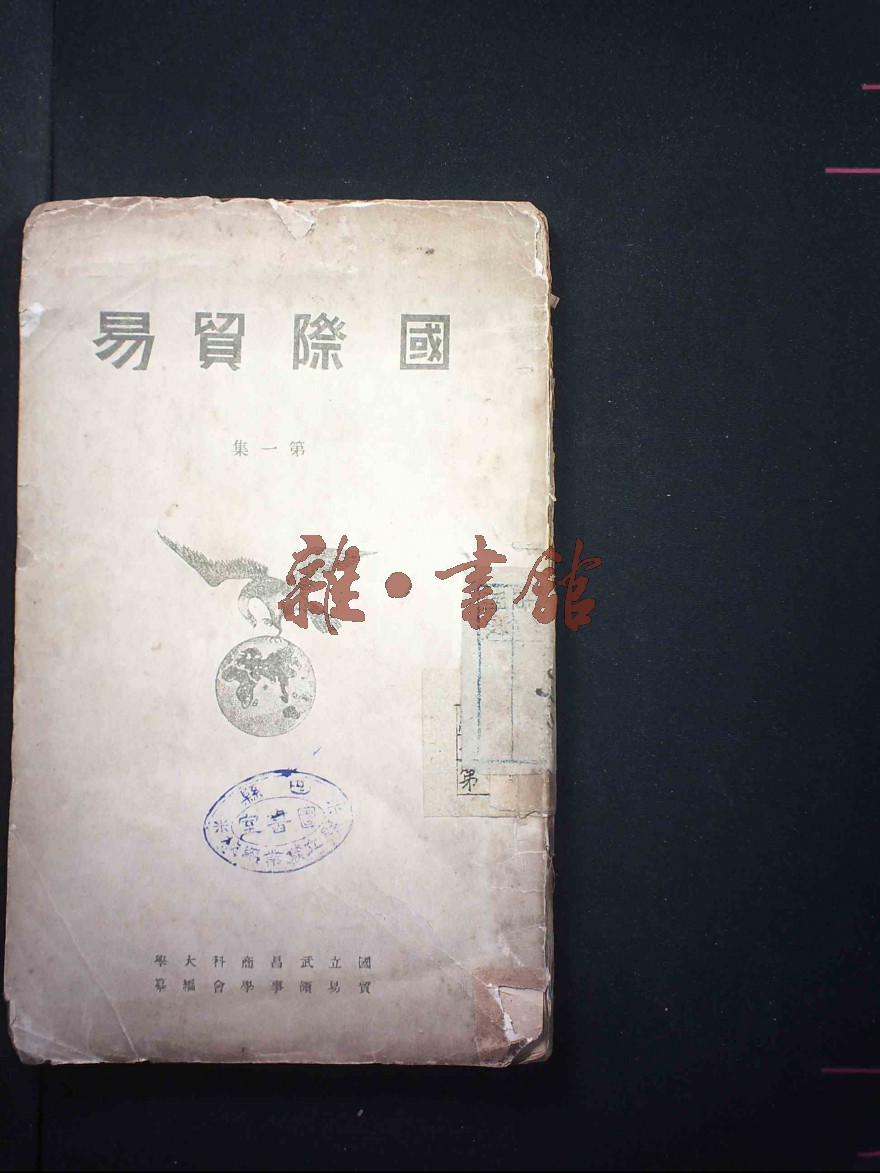 國際貿易
第一集
雜·書館
第
巴縣
圖書室
國立武昌商科大學
貿易領事學會編纂